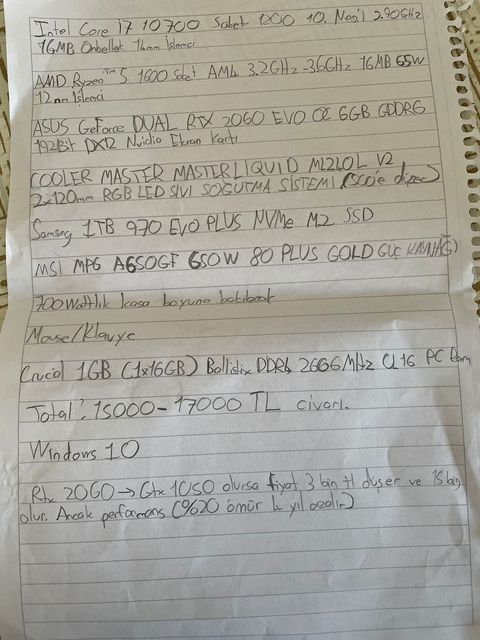 Intel Core i7 10700 Soket 1200 10. Nesil 2.90GHz
16MB Önbellek 14nm İşlemci
AMD Ryzen™ 5 1600 Soket AM4 3.2GHz-3.6GHz 16MB 65W
12nm İşlemci
ASUS GeForce DUAL RTX 2060 EVO OC 6GB GDDR6
192Bit DX12 Nvidia Ekran Kartı
COOLER MASTER MASTERLIQUID ML240L V2
2x120mm RGB LED SIVI SOĞUTMA SİSTEMİ
Samsung 1TB 970 EVO PLUS NVMe M.2 SSD
MSI MPG A650GF 650W 80 PLUS GOLD GÜÇ KAYNAĞI
700 Wattlık kasa boyuna bakılacak
Mouse/Klavye
Crucial 1GB (1x16GB) Ballistix DDR4 2666MHz CL16 PC Ram
Total: 15000-17000 TL civarı.
Windows 10
Rtx 2060 → Gtx 1050 olursa fiyat 3 bin tl düşer ve 15 bin
olur. Ancak performans (%20 ömür 4 yıl azalır)